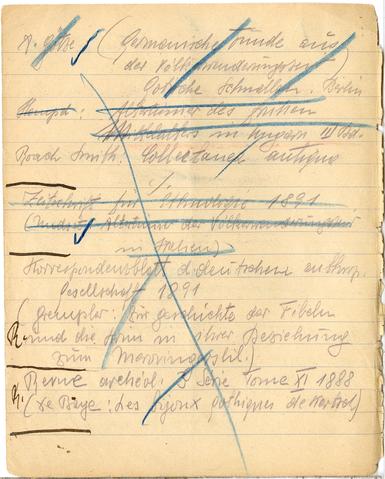 A. Götze (Germanische Funde aus
der Völkerwanderungszeit
Gotische Schnallen. Berlin
Hampel: Altertümer des frühen
Mittelalters in Ungarn III Bd.
Roach Smith. Collectanea antiqua
Zeitschrift für Ethnologie 1891
(Undset: Altertümer der Völkerwanderungszeit
in Italien)
Korrespondenzblatt d. deutschen anthrop.
Gesellschaft 1891
(Grempler: Zur Geschichte der Fibeln
und die in ihrer Beziehung
zum
R. Revue archéol. 3 Série Tome XI 1888
R. (De Baye: Les bijoux gothiques de Kertsch)